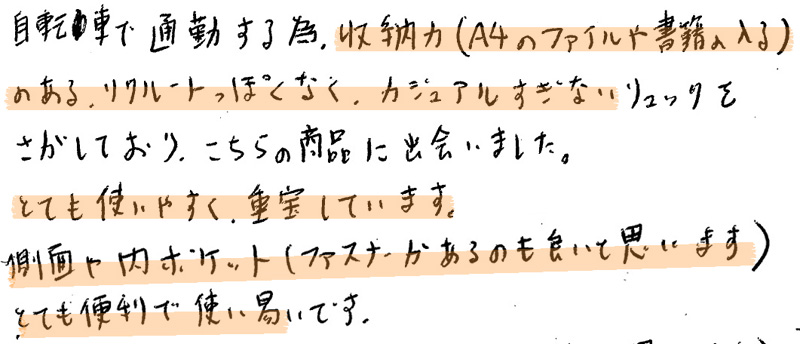 自転車で通勤する為、収納力(A4のファイルや書籍の入る)
のある、リクルートっぽくなく、カジュアルすぎないリュックを
さがしており、こちらの商品に出会いました。
とても使いやすく、重宝しています。
側面や内ポケット(ファスナーがあるのも良いと思います)
とても便利で使い易いです。